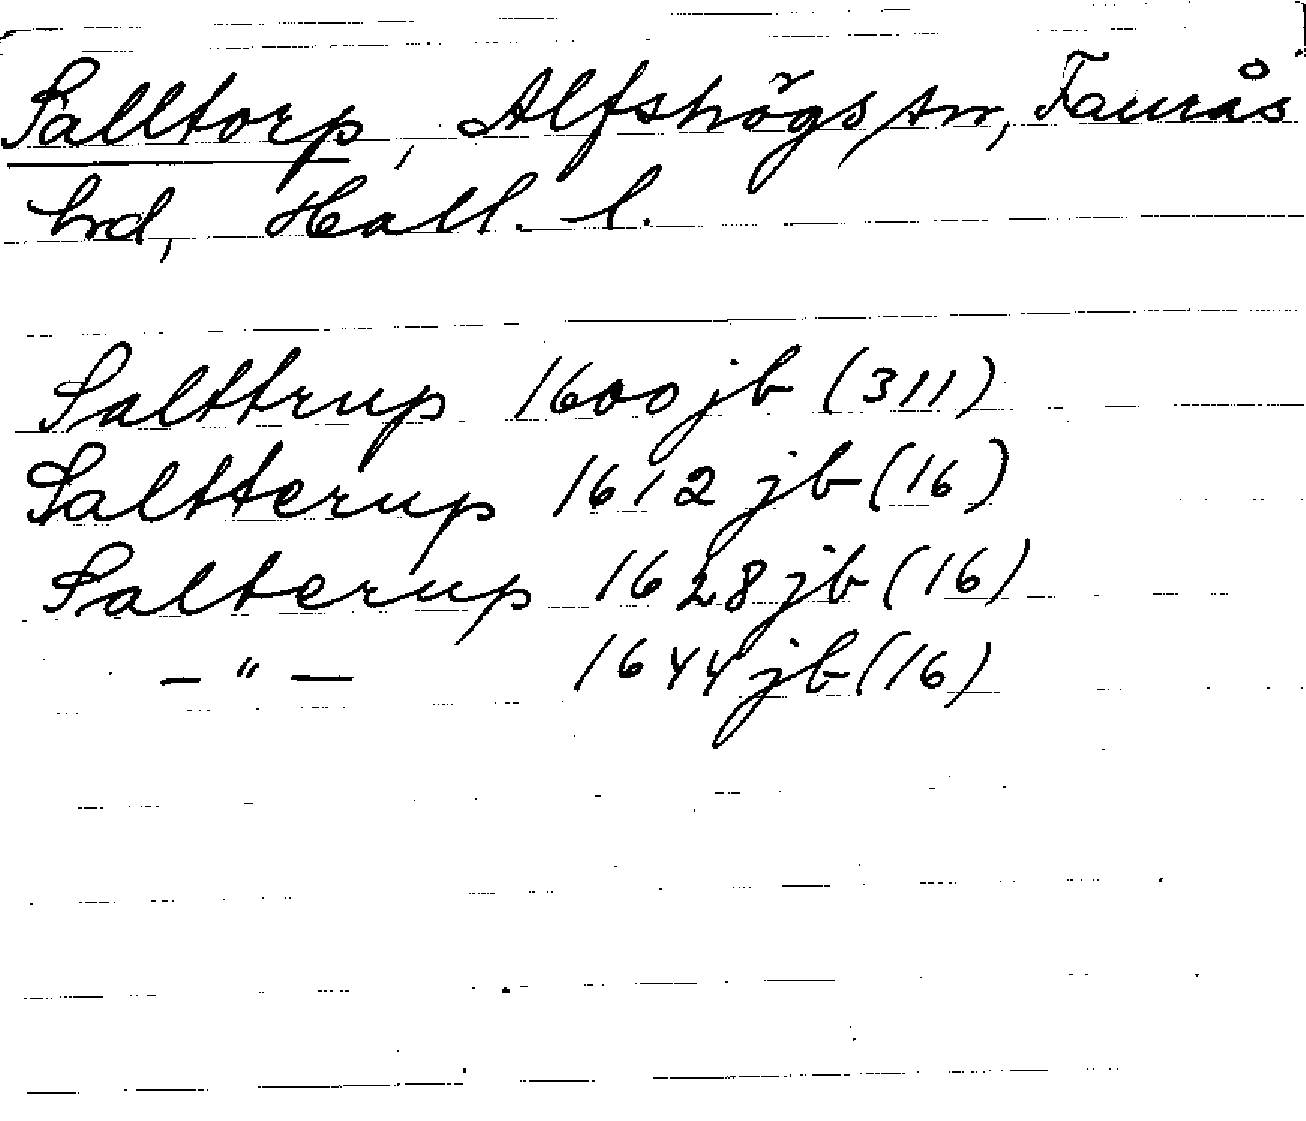 Salltorp, Alfshögs sn, Faurås
hrd, Hall. l.
Salttrup 1600 jb (311)
Saltterup 1612 jb (16)
Salterup 1628 jb (16)
— " — 1644 jb (16)